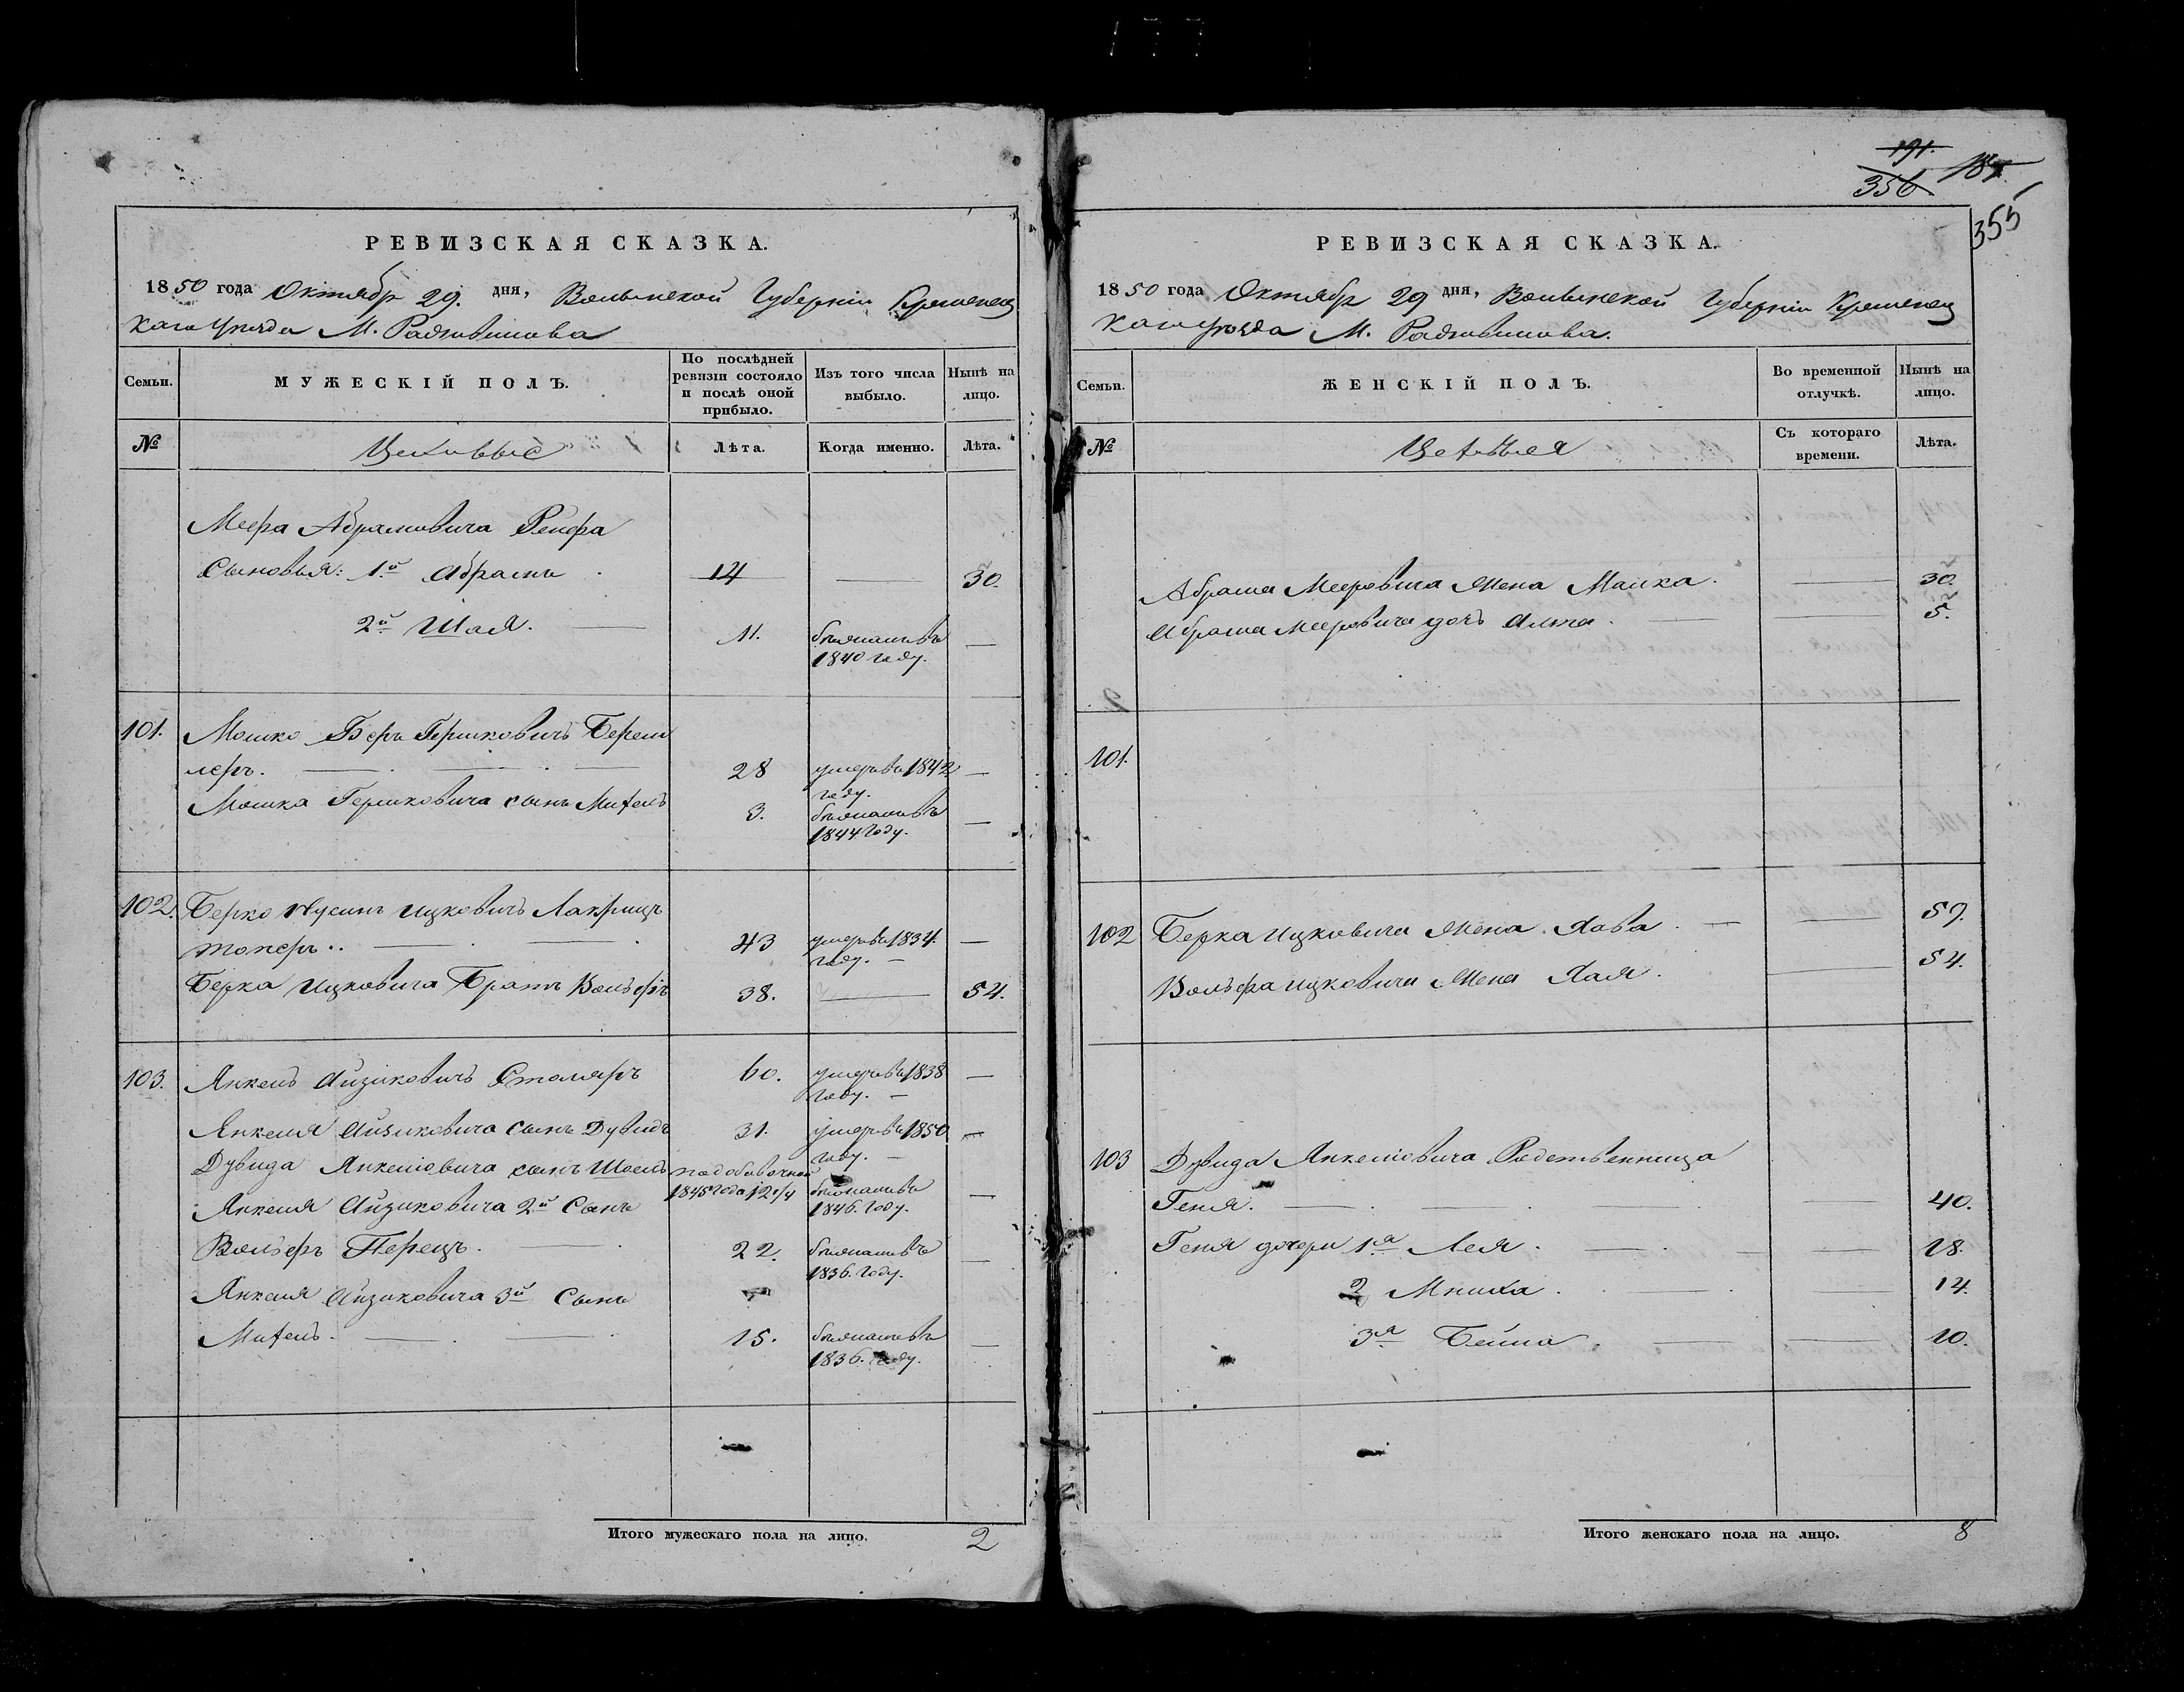 РЕВИЗСКАЯ СКАЗКА.
1850 года Октябр 29. дня, Волынской Губерніи Кременец
каго Уѣзда М. Радзивилова
Семьи.
МУЖЕСКІЙ ПОЛЪ.
По послѣдней ревизіи состояло и послѣ оной прибыло.
Изъ того числа выбыло.
Нынѣ на лицо.
№
Цеховые
Лѣта.
Когда именно.
Лѣта.
Меера Абрамовича
Сыновья: 1й Абрамъ 14 — 30.
2й Шая. 11.
1840 году. —
101. Мошко Беръ Гершковичъ Берем
леръ. 28 умеръ въ 1842 —
году.
Мошка Гершковича сынъ Михель 3.
1844 году. —
102. Берко Нусинъ Ицковичъ Лакриц
моперъ.. 43 умеръ въ 1834. —
году. —
Берка Ицковича Братъ Вольфъ 38. — 54.
103. Янкель Айзиковичъ Столяръ 60. умеръ въ 1838 —
году. —
Янкеля Айзиковича сынъ Дувидъ 31. умеръ въ 1850 —
году. —
Дувида Янкелювича сынъ Шоель по добавочной
1845 года 12 1/4
1846. году. —
Янкеля Айзиковича 2й Сынъ
Вольфъ Перецъ. 22.
1836. году. —
Янкеля Айзиковича 3й Сынъ
Михель. 15.
1836. году. —
Итого мужескаго пола на лицо. 2
191.
356
187.
355
РЕВИЗСКАЯ СКАЗКА.
1850 года Октябр 29 дня, Волынской Губерніи Кременец
каго уѣзда М. Радзивилова.
Семьи.
ЖЕНСКІЙ ПОЛЪ.
Во временной отлучкѣ.
Нынѣ на лицо.
№
Цеховыя
Съ котораго времени.
Лѣта.
Абрама Мееровича жена Малка. — 30.
Абрама Мееровича дочь Алта. — 5.
101.
102 Берка Ицковича жена Хава. — 59.
Вольфа Ицковича жена Хая. — 54.
103 Дувида Янкелювича Родственница
Геня. — 40.
Геня дочери 1я Лея. — 18.
2 Мниха. — 14.
3я Бейла. — 10.
Итого женскаго пола на лицо. 8